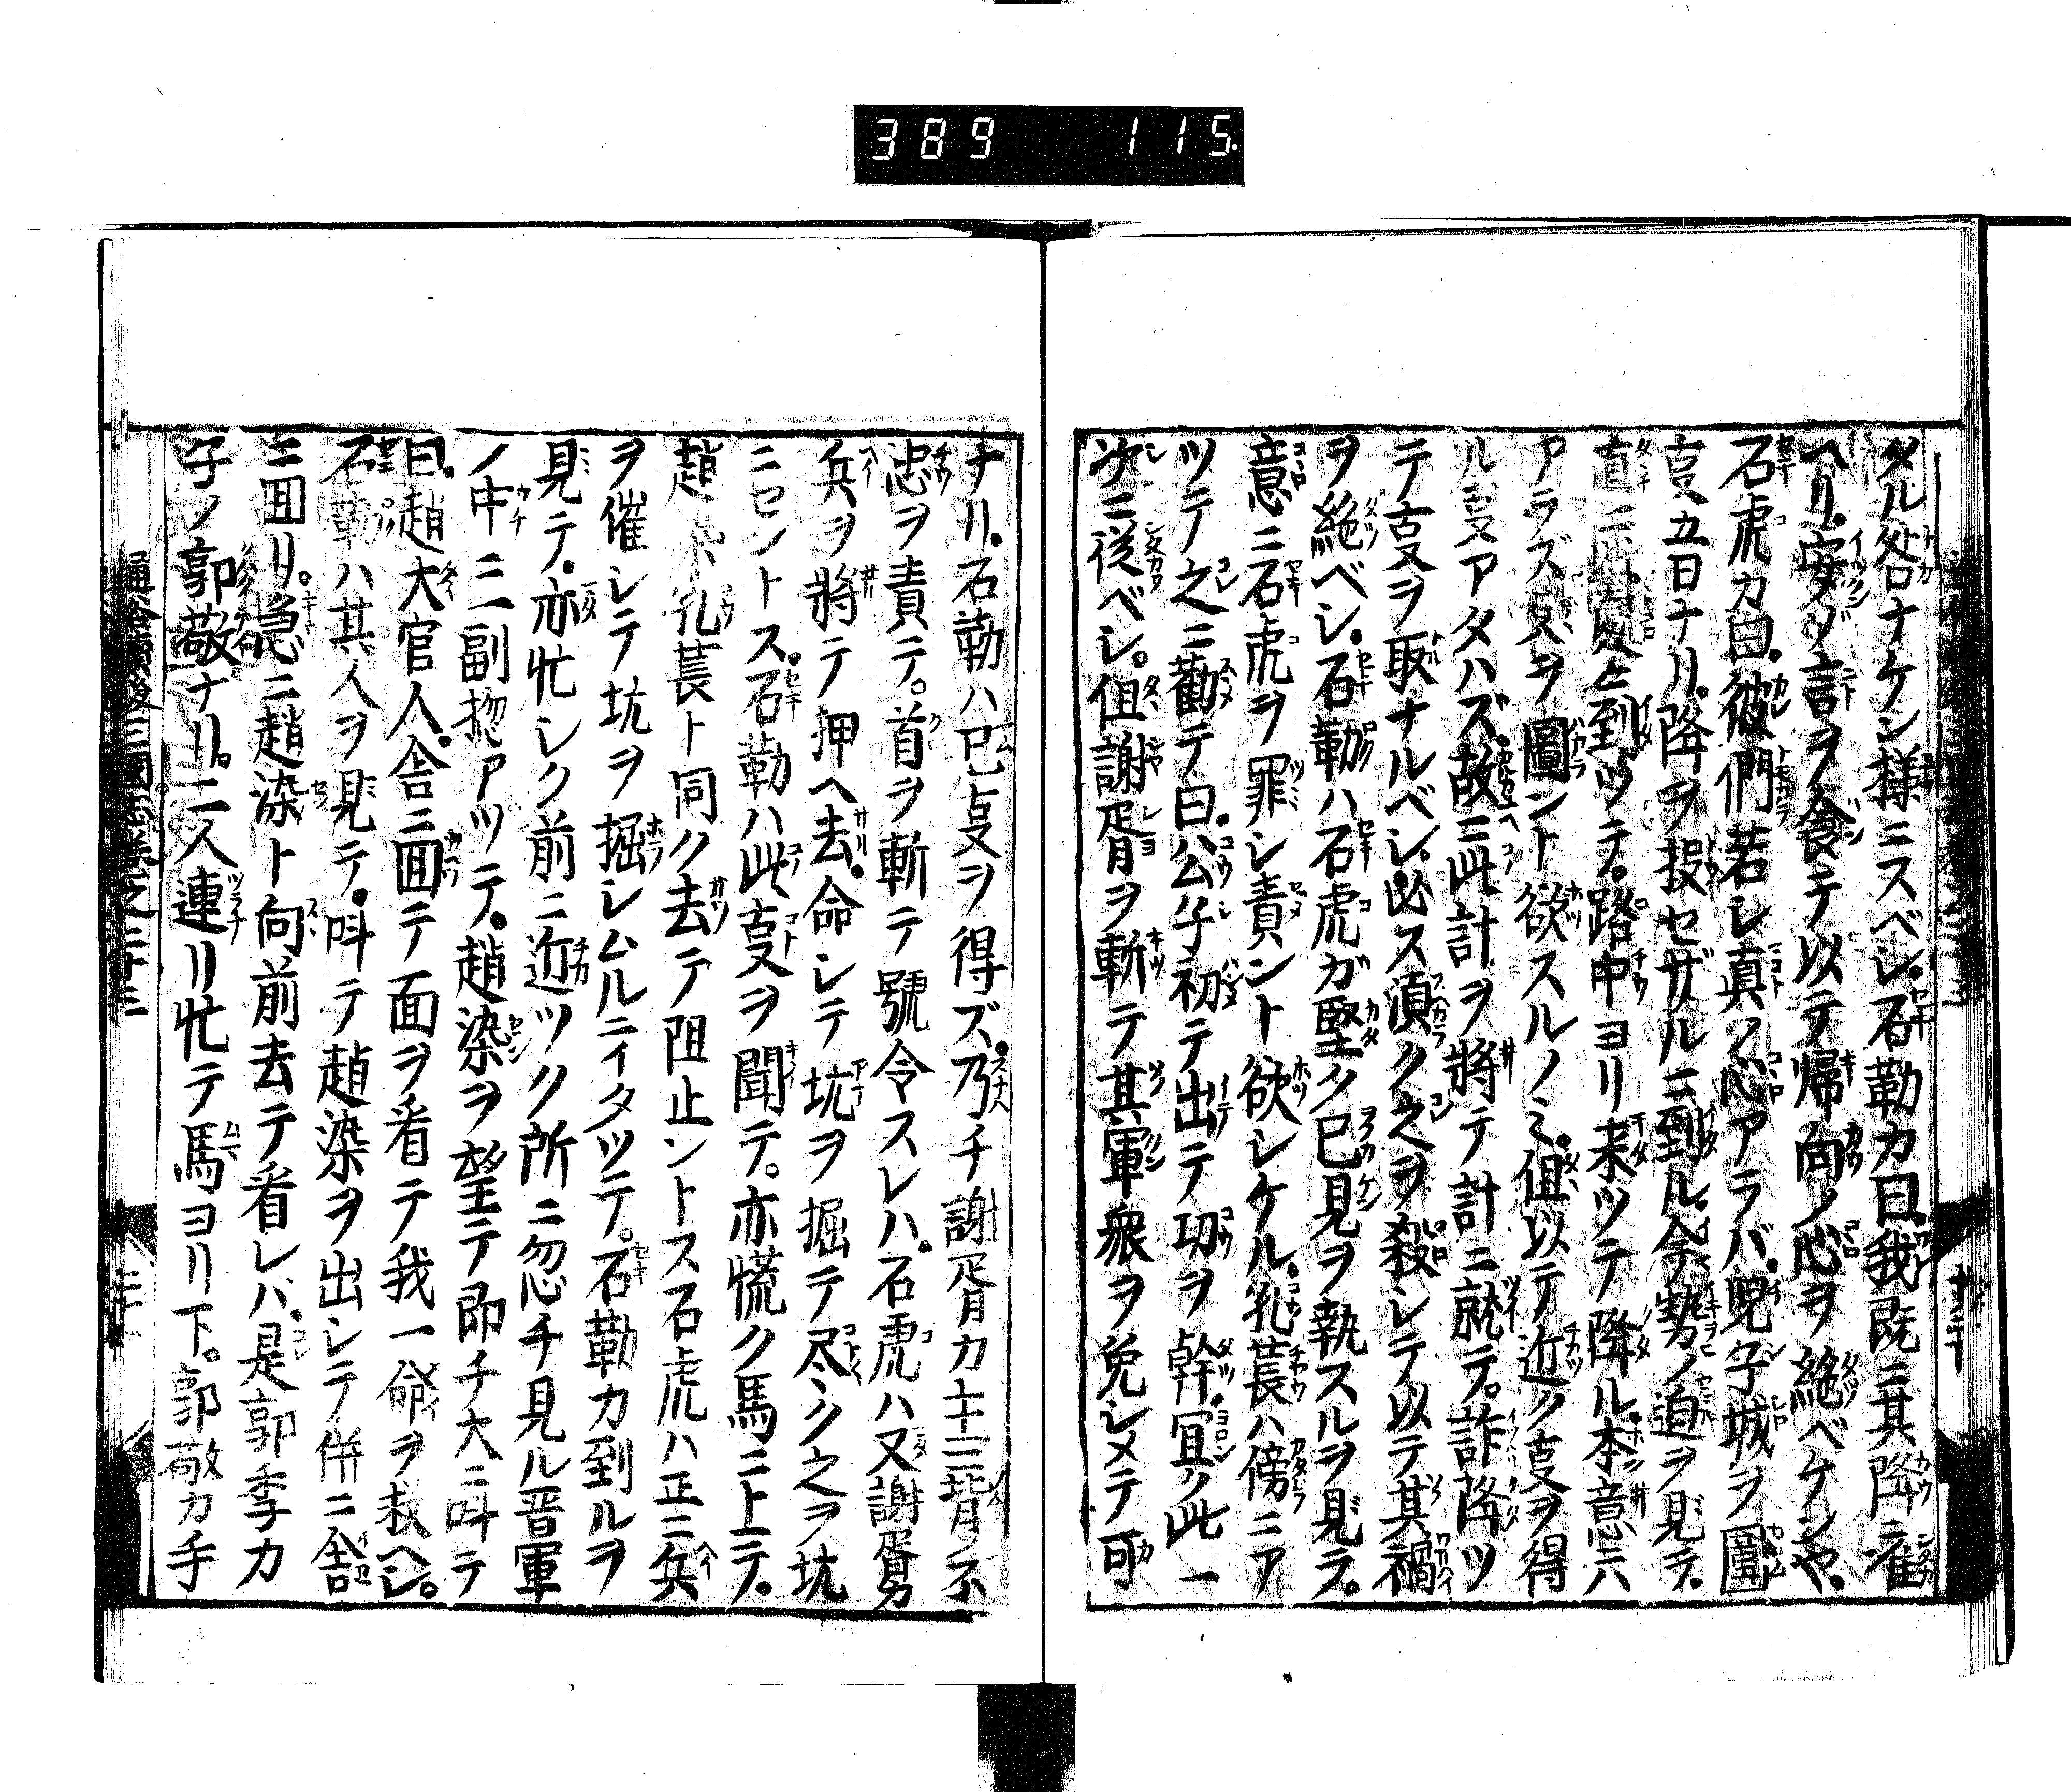 389 115.
タル咎ナケン様ニスベシ。石勒カ曰。我既ニ其降ニ准
ヘリ。安ゾ言ヲ食テ以テ帰向ノ心ヲ絶ベケンヤ。
石虎カ曰。彼們若シ真ノ心アラバ。児子城ヲ圍
五日ナリ。降ヲ投セザルニ到ル。今勢ノ迫ヲ見テ。
直ニ到ツテ。路中ヨリ来ツテ降ル。本意ニ
アラズ。父ヲ圖ント欲スルノミ。但以テ近ク事ヲ得
ル事アタハズ。故ニ此計ヲ將テ計ニ就テ。詐降ツ
テ事ヲ取ナルベシ。必ス須ク之ヲ殺シテ以テ其禍
ヲ絶ベシ。石勒ハ石虎ガ堅ク已見ヲ執スルヲ見テ。
意ニ石虎ヲ罪シ責ント欲シケル。孔萇ハ傍ニア
ツテ之ニ勸テ曰。公子初テ出テ功ヲ幹。冝ク此一
次ニ從ベシ。但謝胥ヲ斬テ其軍衆ヲ免シメテ可
ナリ。石勒ハ已事ヲ得ズ。乃チ謝胥カ主ニ背不
忠ヲ責テ。首ヲ斬テ號令スレハ。石虎ハ又謝胥カ
兵ヲ將テ押ヘ去。命シテ坑ヲ掘テ尽ク之ヲ坑
ニセントス。石勒ハ此事ヲ聞テ。亦慌ク馬ニ上テ。
趙 孔萇ト同ク去テ阻止ントス石虎ハ正ニ兵
ヲ催シテ坑ヲ掘シムルニイタツテ。石勒カ到ルヲ
見テ。亦忙シク前ニ近ツク所ニ忽チ見ル晋軍
ノ中ニ一副惣アツテ。趙染ヲ望テ即チ大ニ呌テ
曰。趙大官人。舍ニ囬テ面ヲ看テ我一命ヲ救ヘシ。
石勒ハ其人ヲ見テ。呌テ趙染ヲ出シテ併ニ舍
ニ囬リ。急ニ趙染ト向前去テ看レバ。是郭季カ
子ノ郭敬ナリ。二人連リ忙テ馬ヨリ下。郭敬カ手